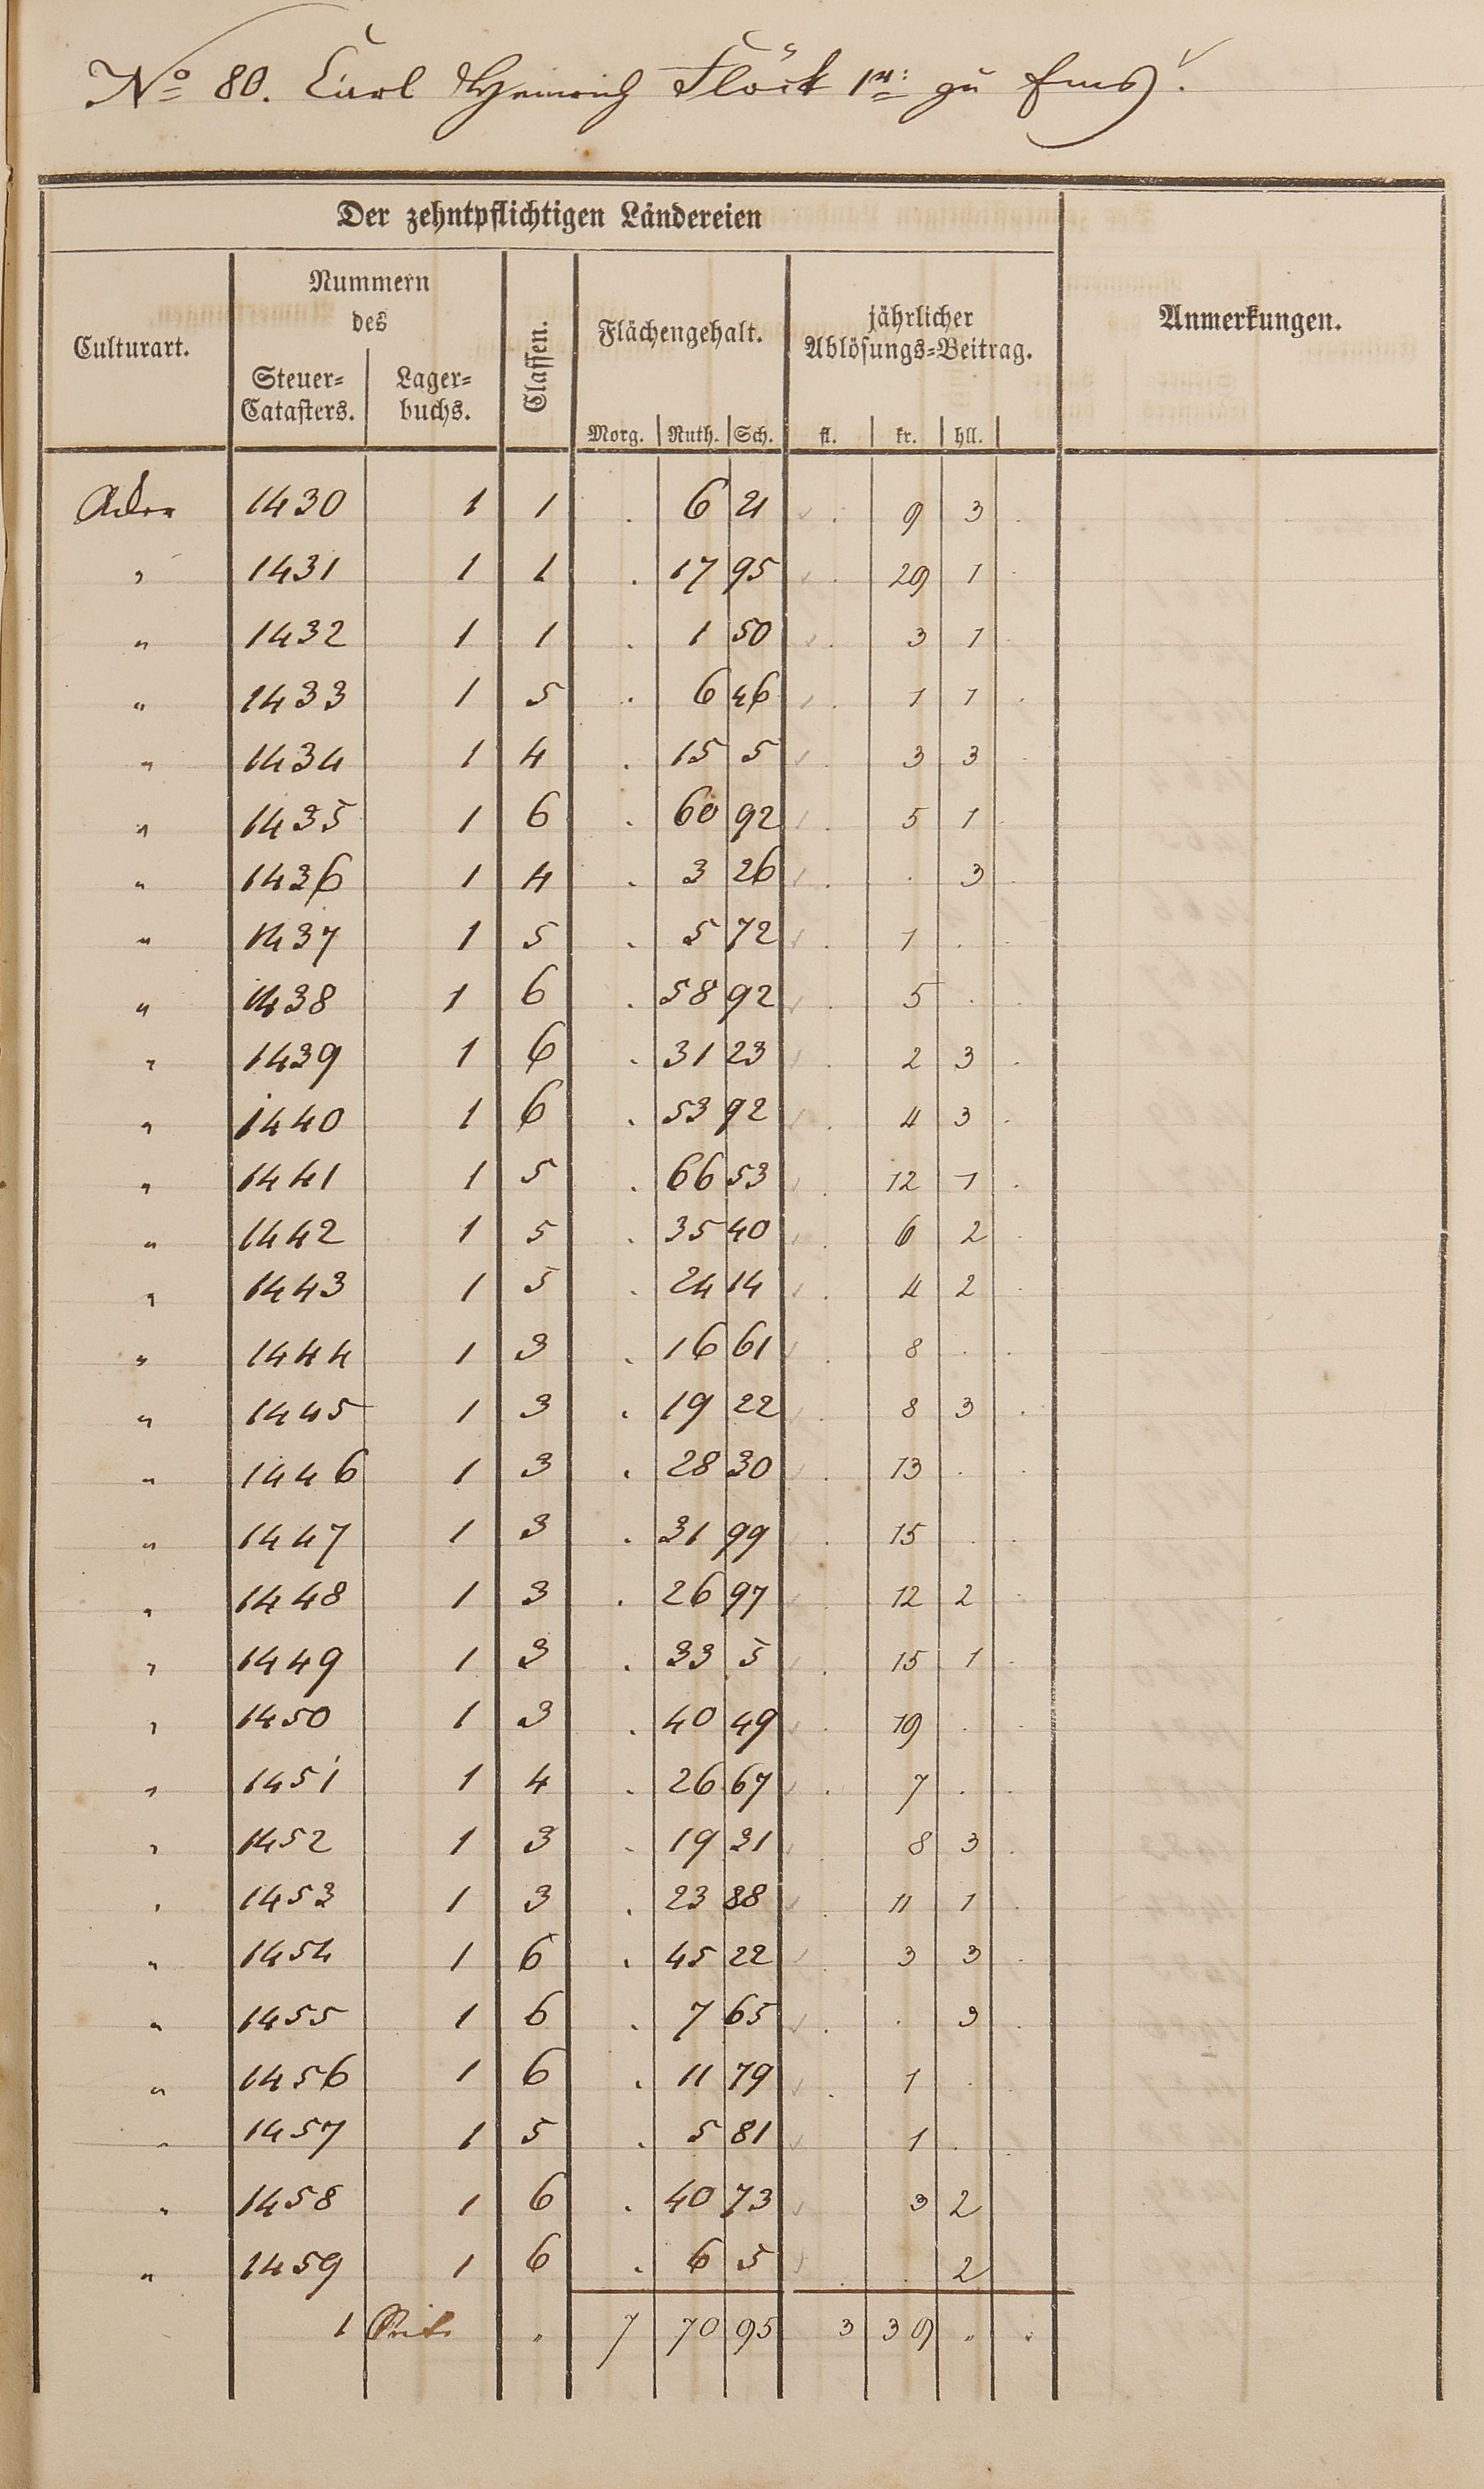 No 80. Carl Heinrich Flöck 1r: zu Ems.
Der zehntpflichtigen Ländereien
Culturart.
Nummern
des
Steuer=
Catasters.
Lager=
buchs.
Classen.
Flächengehalt.
Morg. Ruth. Sch.
jährlicher
Ablösungs=Beitrag.
fl. kr. hll.
Anmerkungen.
Acker 1430 1 1 . 6 21 . 9 3 .
" 1431 1 1 . 17 95 . 29 1 .
" 1432 1 1 . 1 50 . 3 1 .
" 1433 1 5 . 6 46 . 1 1 .
" 1434 1 4 . 15 5 . 3 3 .
" 1435 1 6 . 60 92 . 5 1 .
" 1436 1 4 . 3 26 . . 3 .
" 1437 1 5 . 5 72 . 1 . .
" 1438 1 6 . 58 92 . 5 . .
" 1439 1 6 . 31 23 . 2 3 .
" 1440 1 6 . 53 92 . 4 3 .
" 1441 1 5 . 66 53 . 12 1 .
" 1442 1 5 . 35 40 . 6 2 .
" 1443 1 5 . 24 14 . 4 2 .
" 1444 1 3 . 16 61 . 8 . .
" 1445 1 3 . 19 22 . 8 3 .
" 1446 1 3 . 28 30 . 13 . .
" 1447 1 3 . 31 99 . 15 . .
" 1448 1 3 . 26 97 . 12 2 .
" 1449 1 3 . 33 5 . 15 1 .
" 1450 1 3 . 40 49 . 19 . .
" 1451 1 4 . 26 67 . 7 . .
" 1452 1 3 . 19 31 . 8 3 .
" 1453 1 3 . 23 88 . 11 1 .
" 1454 1 6 . 45 22 . 3 3 .
" 1455 1 6 . 7 65 . . 3 .
" 1456 1 6 . 11 79 . 1 . .
" 1457 1 5 . 5 81 1 . .
" 1458 1 6 . 40 73 3 2
" 1459 1 6 . 6 5 . . 2
1 " 7 70 95 3 39 " "